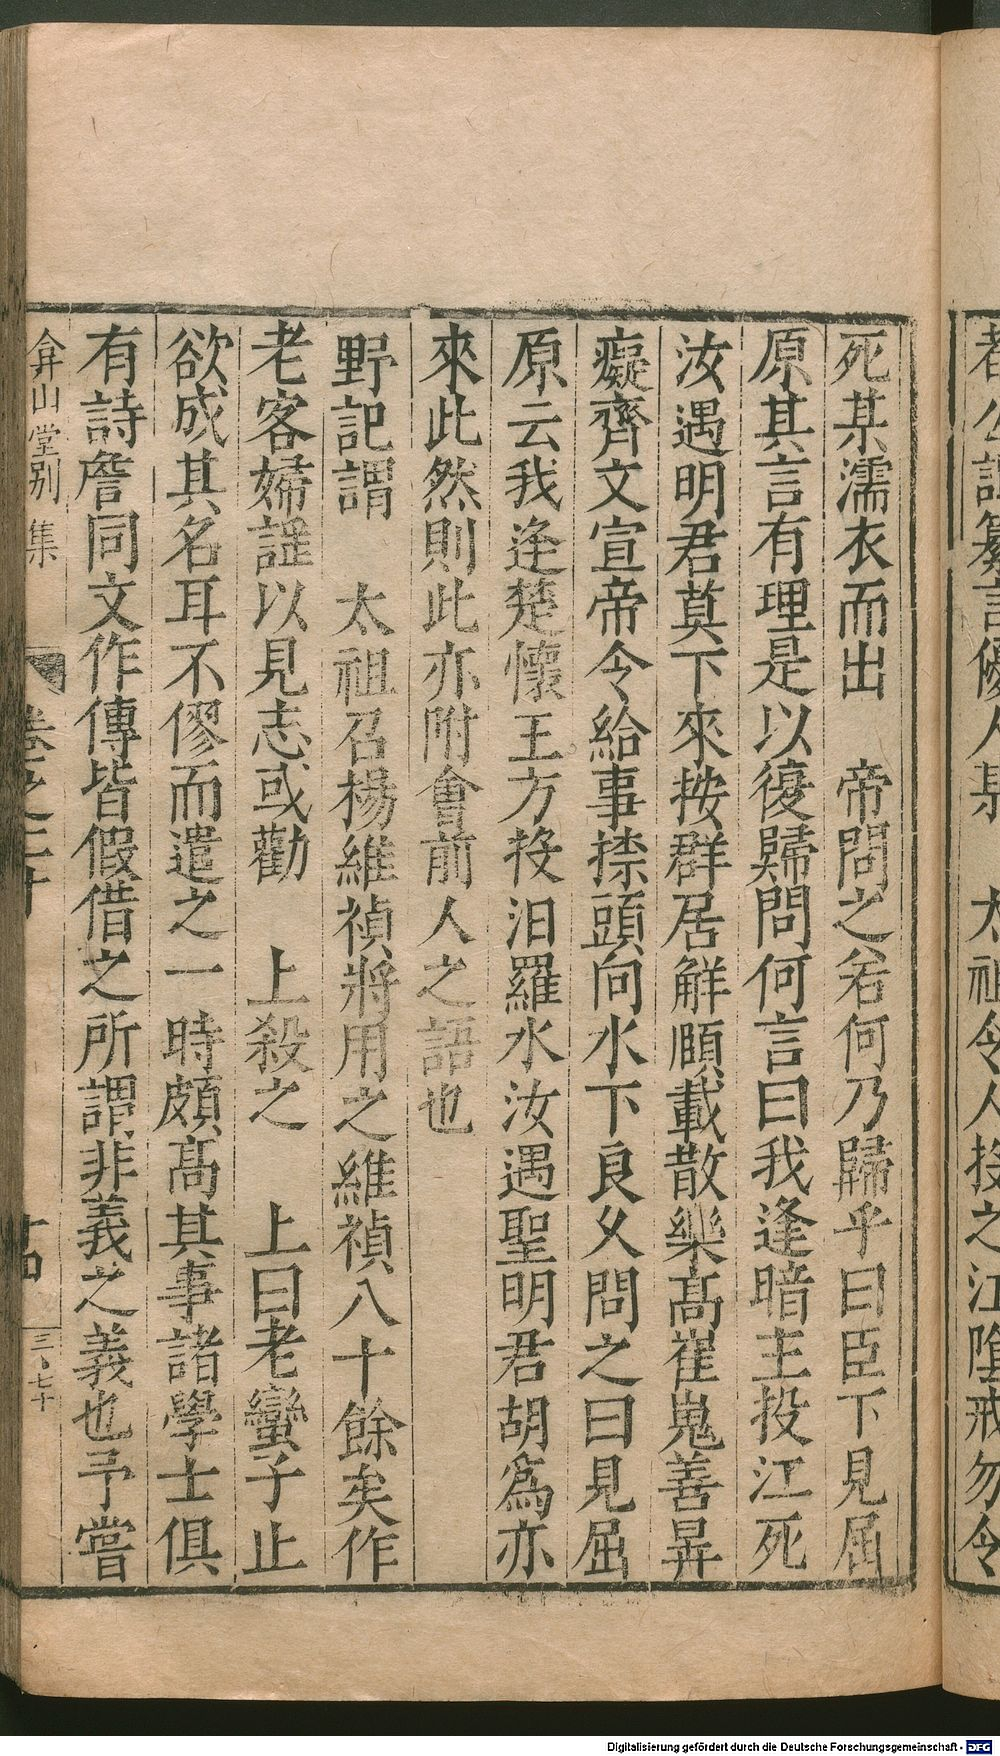 都公談纂言優人某　太祖令人投之江陰戒勿令
死某濡衣而出　帝問之若何乃歸乎曰臣下見屈
原其言有理是以復歸問何言曰我逢暗主投江死
汝遇明君莫下來按群居解頤載散樂髙崔嵬善弄
癡齊文宣帝令給事捺頭向水下良乆問之曰見屈
原云我逢楚懷王方投汨羅水汝遇聖明君胡為亦
來此然則此亦附會前人之語也
野記謂　太祖召楊維禎將用之維禎八十餘矣作
老客婦謡以見志或勸　上殺之　上曰老蠻子止
欲成其名耳不僇而遣之一時頗髙其事諸學士俱
有詩詹同文作傳皆假借之所謂非義之義也予嘗
弇山堂別集
卷之二十
三、七十
Digitalisierung gefördert durch die Deutsche Forschungsgemeinschaft - DFG